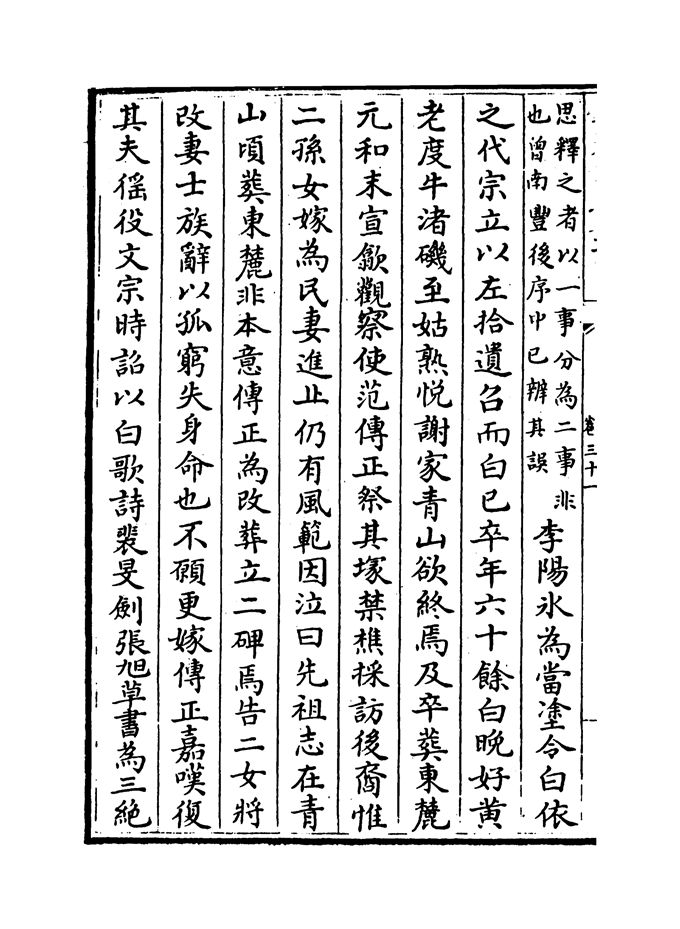 思釋之者以一事分為二事非
也曾南豐後序中已辨其誤
李陽冰為當塗令白依
之代宗立以左拾遺召而白已卒年六十餘白晚好黄
老度牛渚磯至姑熟悦謝家青山欲終焉及卒葬東麓
元和末宣歙觀察使范傳正祭其塚禁樵採訪後裔惟
二孫女嫁為民妻進止仍有風範因泣曰先祖志在青
山頃葬東麓非本意傳正為改葬立二碑焉告二女將
改妻士族辭以孤窮失身命也不願更嫁傳正嘉嘆復
其夫徭役文宗時詔以白歌詩裴旻劍張旭草書為三絶
卷三十一